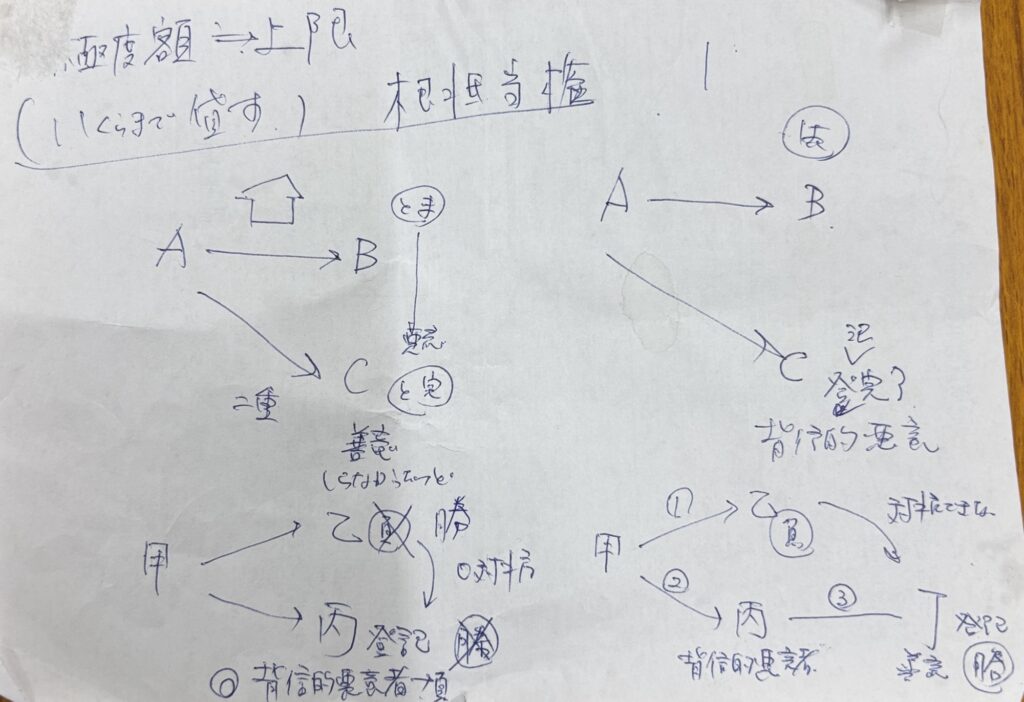 極度額⇒上限
(いくらまで貸す。)
根担当権
A → B
とま
悪意
C
と完
二重
善意
しらなかったっと。
甲
乙 負 勝
○対抗
丙 登記 勝
◎ 背信的悪意者→負
A → B
C
記
登完了
背信的悪意
甲
① 乙
負
対抗できな
②
丙
③
丁
登記
背信的悪意者
善意
勝